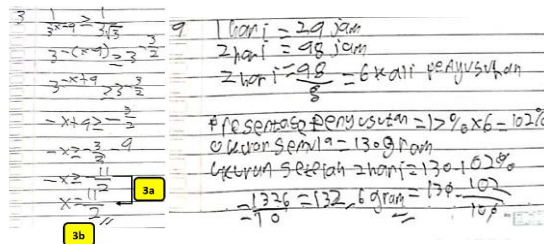 3  1/3^(x-9) ≥ 1/(3√3)
3^-(x-9) ≥ 3^(-3/2)
3^(-x+9) ≥ 3^(-3/2)
-x+9 ≥ -3/2
-x ≥ -3/2 - 9
-x ≥ -11/2
x = 11/2
3a
3b
9. 1 hari = 24 jam
2 hari = 48 jam
2 hari = 48/8 = 6 kali penyusutan
Presentase penyusutan = 17% x 6 = 102%
Ukuran semula = 130 gram
Ukuran setelah 2 hari = 130 - 102%
= 130 · 102/100
= 1326/10 = 132,6 gram